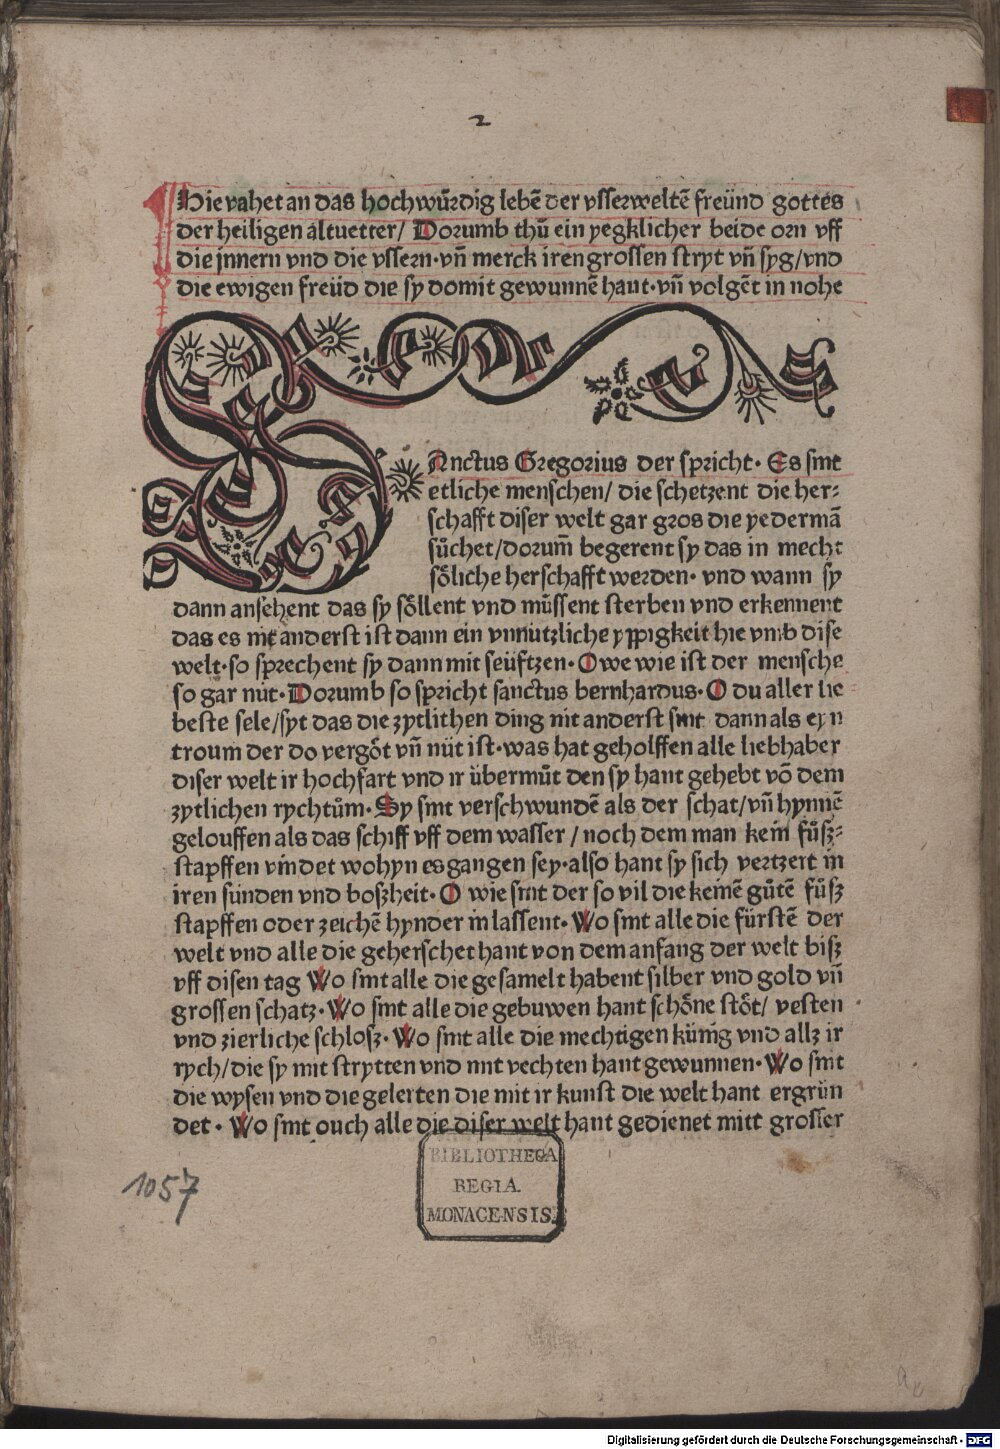 2
Hie vahet an das hochwürdig lebē der vsserweltē freünd gottes
der heiligen altuetter/ Dorumb thů ein yegklicher beide orn vff
die jnnern vnd die vssern·vñ merck iren grossen stryt vñ syg/vnd
die ewigen freüd die sy domit gewunnē hant·vñ volgēt in nohe
Anctus Gregorius der spricht· Es sint
etliche menschen/ die schetzent die her⸗
schafft diser welt gar gros die yedermā
sůchet/dorum̄ begerent sy das in mecht
sőliche herschafft werden· vnd wann sy
dann ansehent das sy sőllent vnd můssent sterben vnd erkennent
das es nit anderst ist dann ein vnnutzliche yppigkeit hie vmb dise
welt·so sprechent sy dann mit seüftzen· O we wie ist der mensche
so gar nüt· Dorumb so spricht sanctus bernhardus· O du aller lie
beste sele/syt das die zytlithen ding nit anderst sint dann als eyn
troum der do vergőt vñ nüt ist·was hat geholffen alle liebhaber
diser welt ir hochfart vnd ir übermůt den sy hant gehebt vō dem
zytlichen rychtům· Sy sint verschwundē als der schat/vñ hynnē
gelouffen als das schiff vff dem wasser/ noch dem man kein fůſz⸗
stapffen vindet wohyn es gangen sey·also hant sy sich vertzert in
iren sünden vnd boſzheit· O wie sint der so vil die keinē gůtē fůſz
stapffen oder zeichē hynder in lassent· Wo sint alle die fürstē der
welt vnd alle die geherschet hant von dem anfang der welt biſz
vff disen tag Wo sint alle die gesamelt habent silber vnd gold vñ
grossen schatz· Wo sint alle die gebuwen hant schőne stőt/ vesten
vnd zierliche schloſz· Wo sint alle die mechtigen künig vnd allz ir
rych/die sy mit strytten vnd mit vechten hant gewunnen· Wo sint
die wysen vnd die gelerten die mit ir kunst die welt hant ergrün
det· Wo sint ouch alle die diser welt hant gedienet mitt grosser
BIBLIOTHECA
REGIA
MONACENSIS.
1057
Digitalisierung gefördert durch die Deutsche Forschungsgemeinschaft - DFG